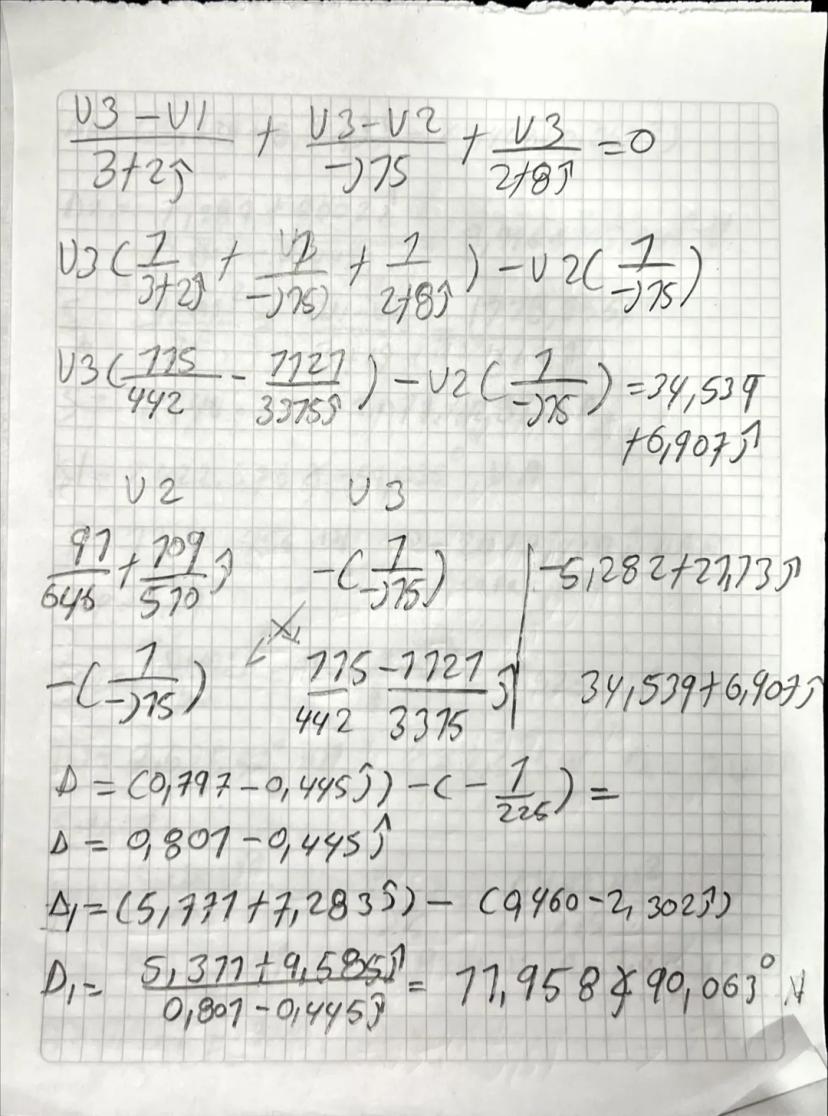 V3-V1/3+2j + V3-V2/-j15 + V3/2+8j = 0
V3(1/3+2j + 1/-j15 + 1/2+8j) - V2(1/-j15)
V3(115/442 - 1121/3315j) - V2(1/-j15) = 34,539
+6,907j
V2 V3
91/646 + 109/510 j -(1/-j15) | -5,282+21,13j
-(1/-j15) 115/442 - 1121/3315 j | 34,539+6,907j
Δ = (0,797-0,445j) - (-1/225) =
Δ = 0,801-0,445j
Δ1 = (5,771+7,283j) - (0,460-2,302j)
D1 = 5,311+9,585j/0,801-0,445j = 11,958∡90,063° N